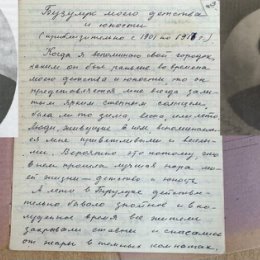 Бузулук моего детства
и юности
(приблизительно с 1901 по 1917 г)
Когда я вспоминаю свой городок,
каким он был раньше, во времена
моего детства и юности, то он
представляется мне всегда зали-
тым ярким степным солнцем,
была ли то зима, весна, или лето.
Люди, живущие в нем вспоминают-
ся мне приветливыми и весел-
ми. Вероятно это потому, что
в нем прошла лучшая пора мо-
ей жизни – детство и юность.
А лето в Бузулуке действи-
тельно бывало знойное и в по-
луденное время все жители
закрывали ставни и спасались
от жары в темных комнатах,